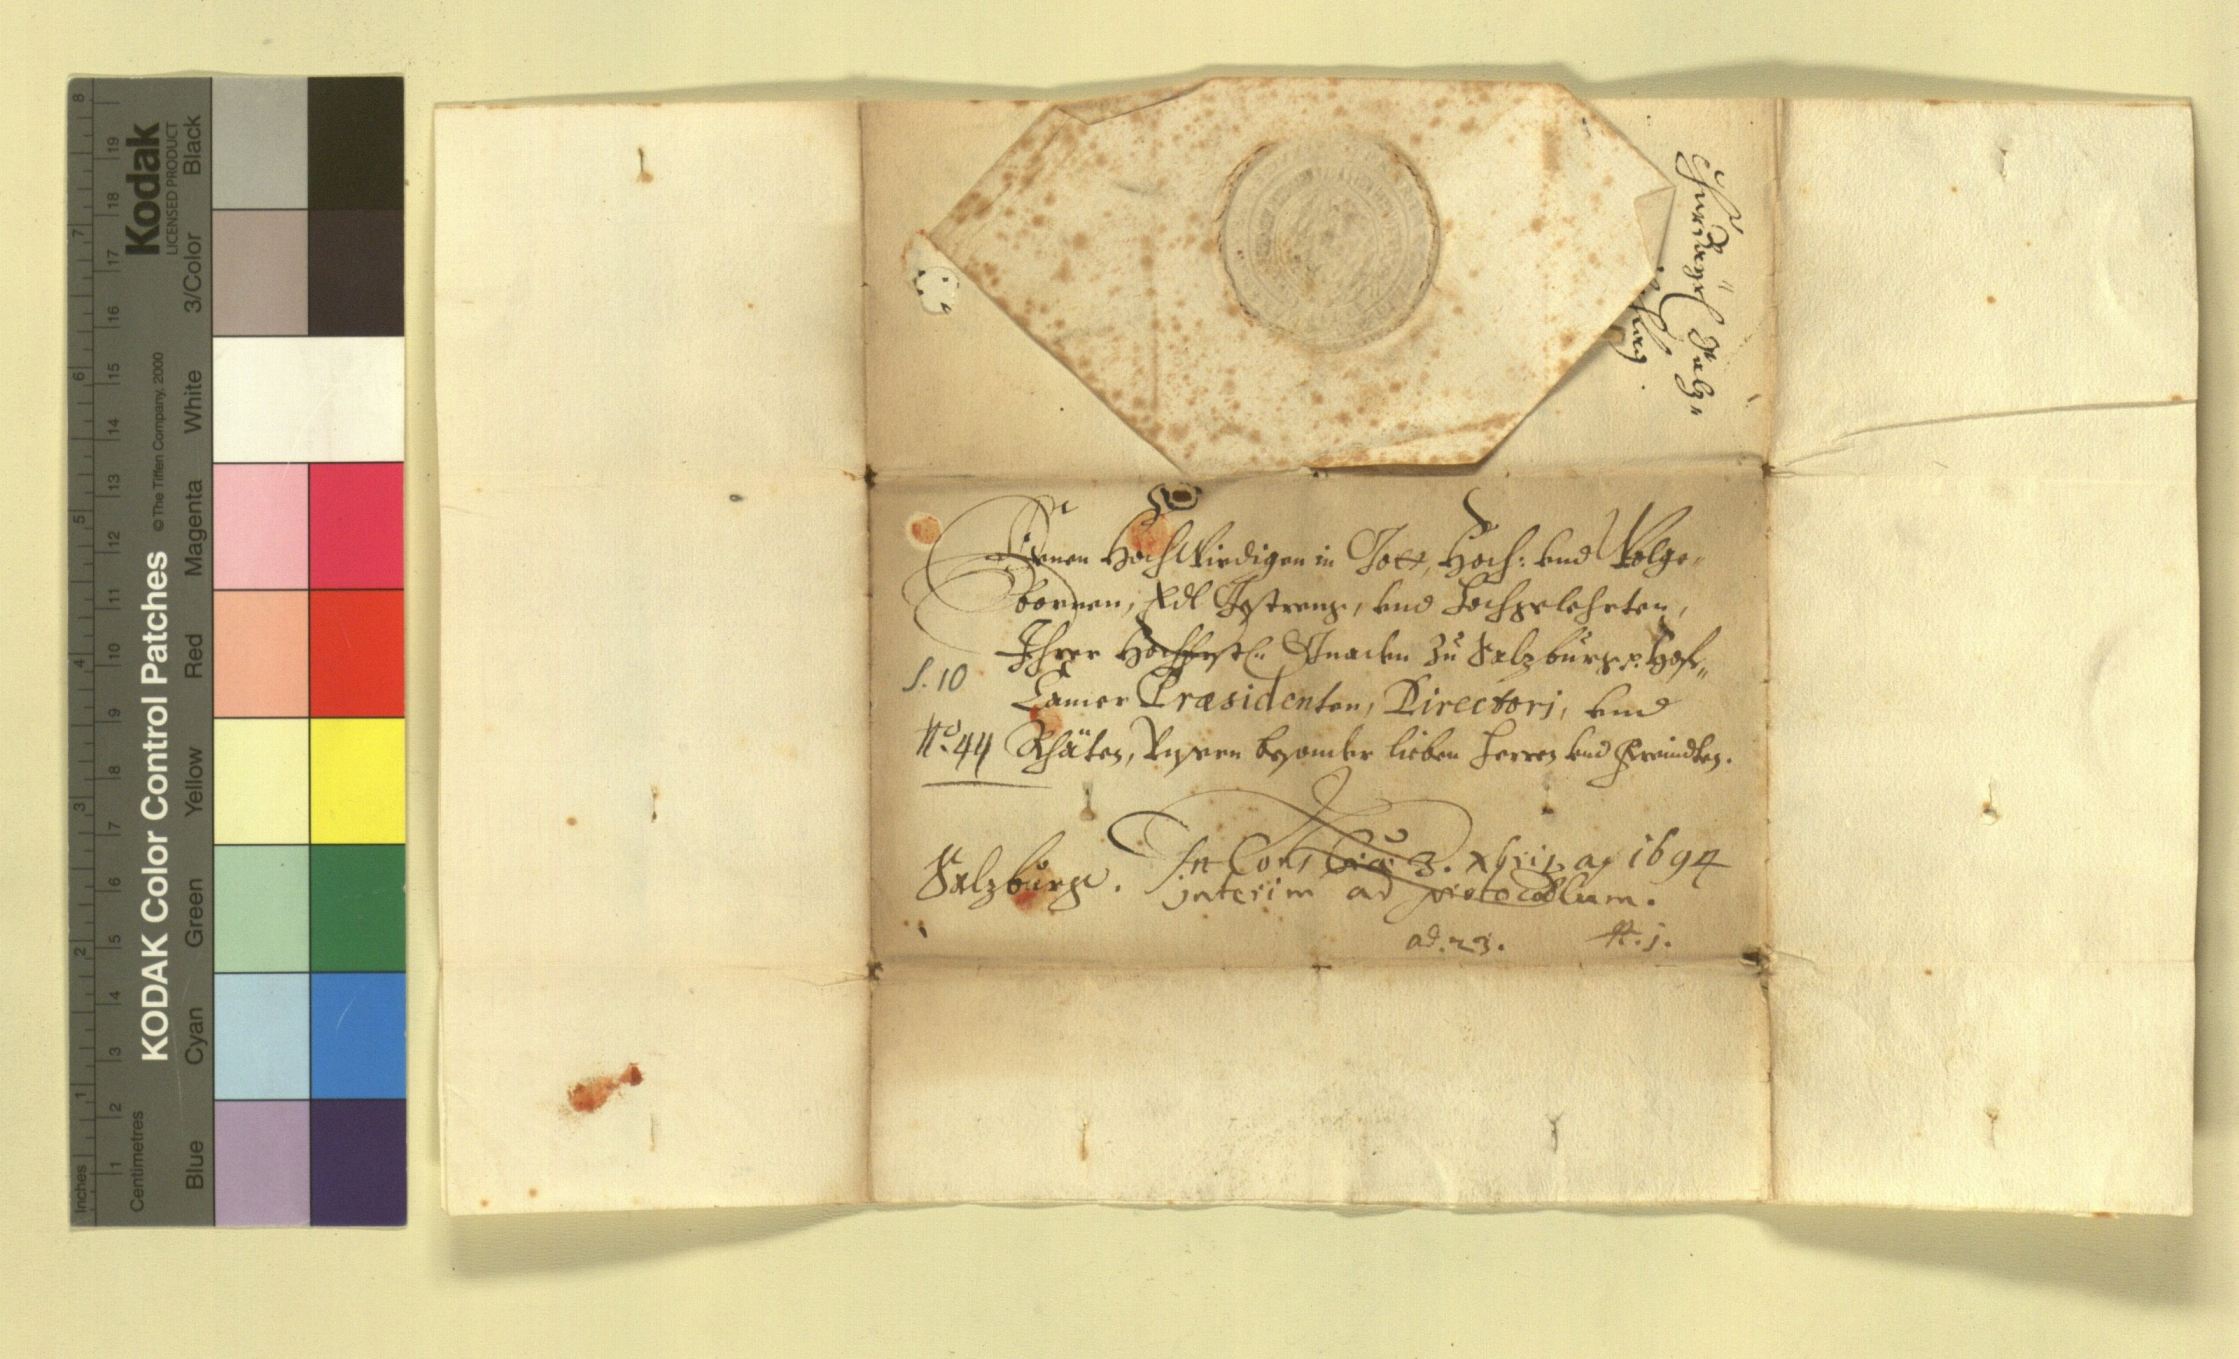 KODAK Color Control Patches
© The Tiffen Company, 2000
Kodak
LICENSED PRODUCT
Blue Cyan Green Yellow Red Magenta White 3/Color Black
Centimetres
1 2 3 4 5 6 7 8 9 10 11 12 13 14 15 16 17 18 19
Inches
1 2 3 4 5 6 7 8
Denen Hochwirdigen in Gott, Hoch: vnd Wolge„
bornen, Edl Gestreng, vnd Hochgelehrten,
Ihrer Hochfrstln Gnaden Zu Salzburg p: Hof„
Camer Præsidenten, Directorj, vnd
Rhäten, Vnsern besonder lieben Herren vnd Freundten.
S. 10
No. 44
Salzburg.
In Cons 3. xbris ao 1694
interim ad protocollum.
ad. 23. N. j.
Churbayrl Salz„